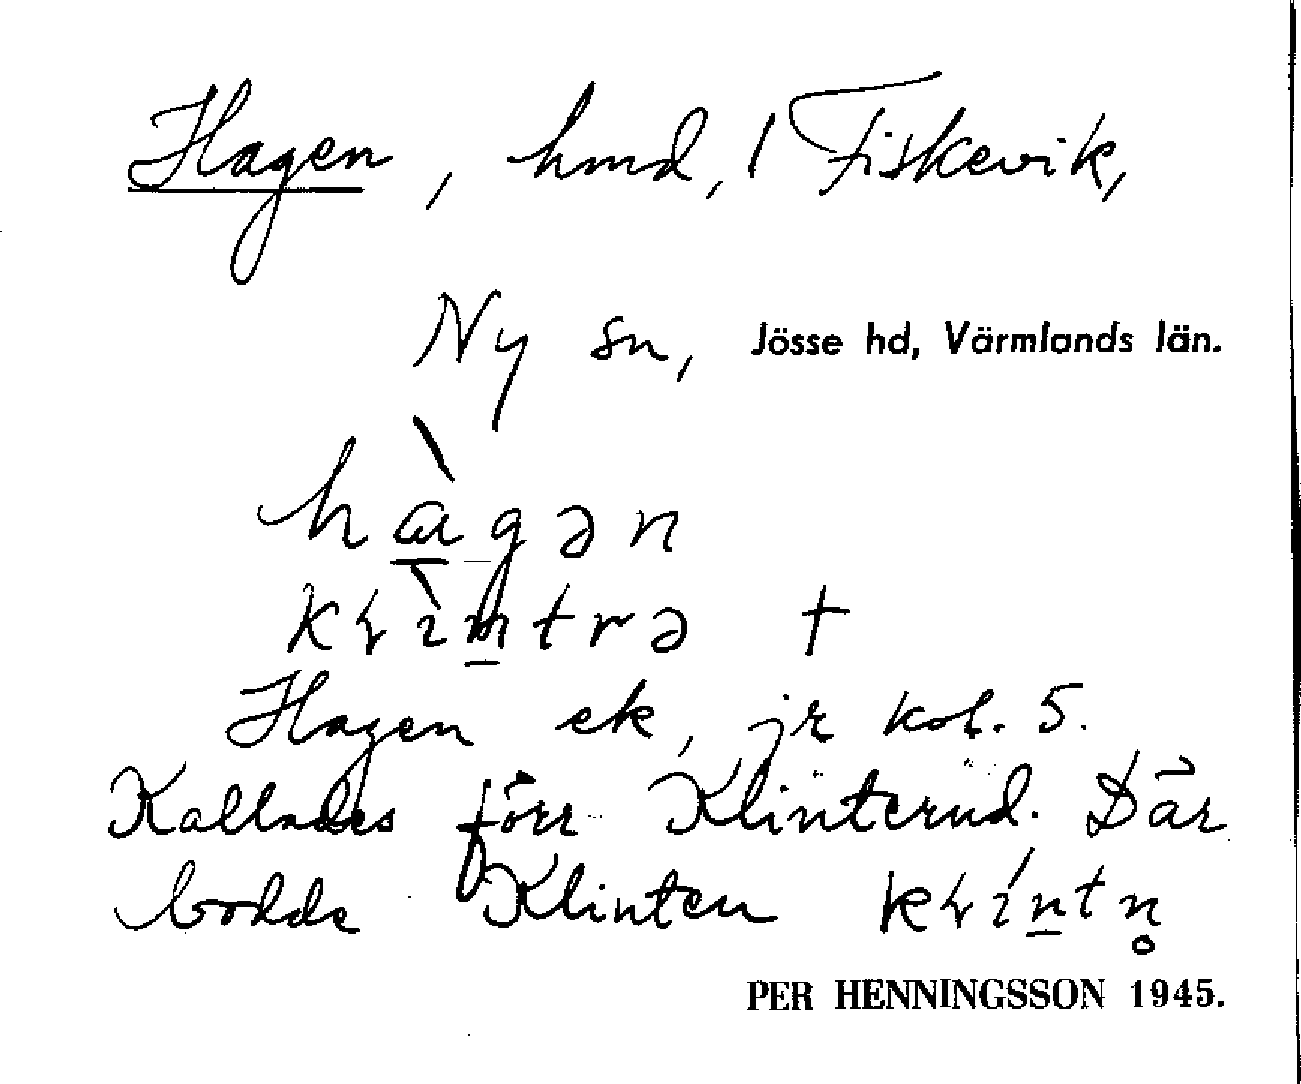 Hagen, hmd, 1 Fiskevik,
Ny sn, Jösse hd, Värmlands län.
hàgən
kɽìntrə †
Hagen ek, jr kol. 5.
Kallades förr Klinterud. Där
bodde Klinten kɽíntn̥
PER HENNINGSSON 1945.